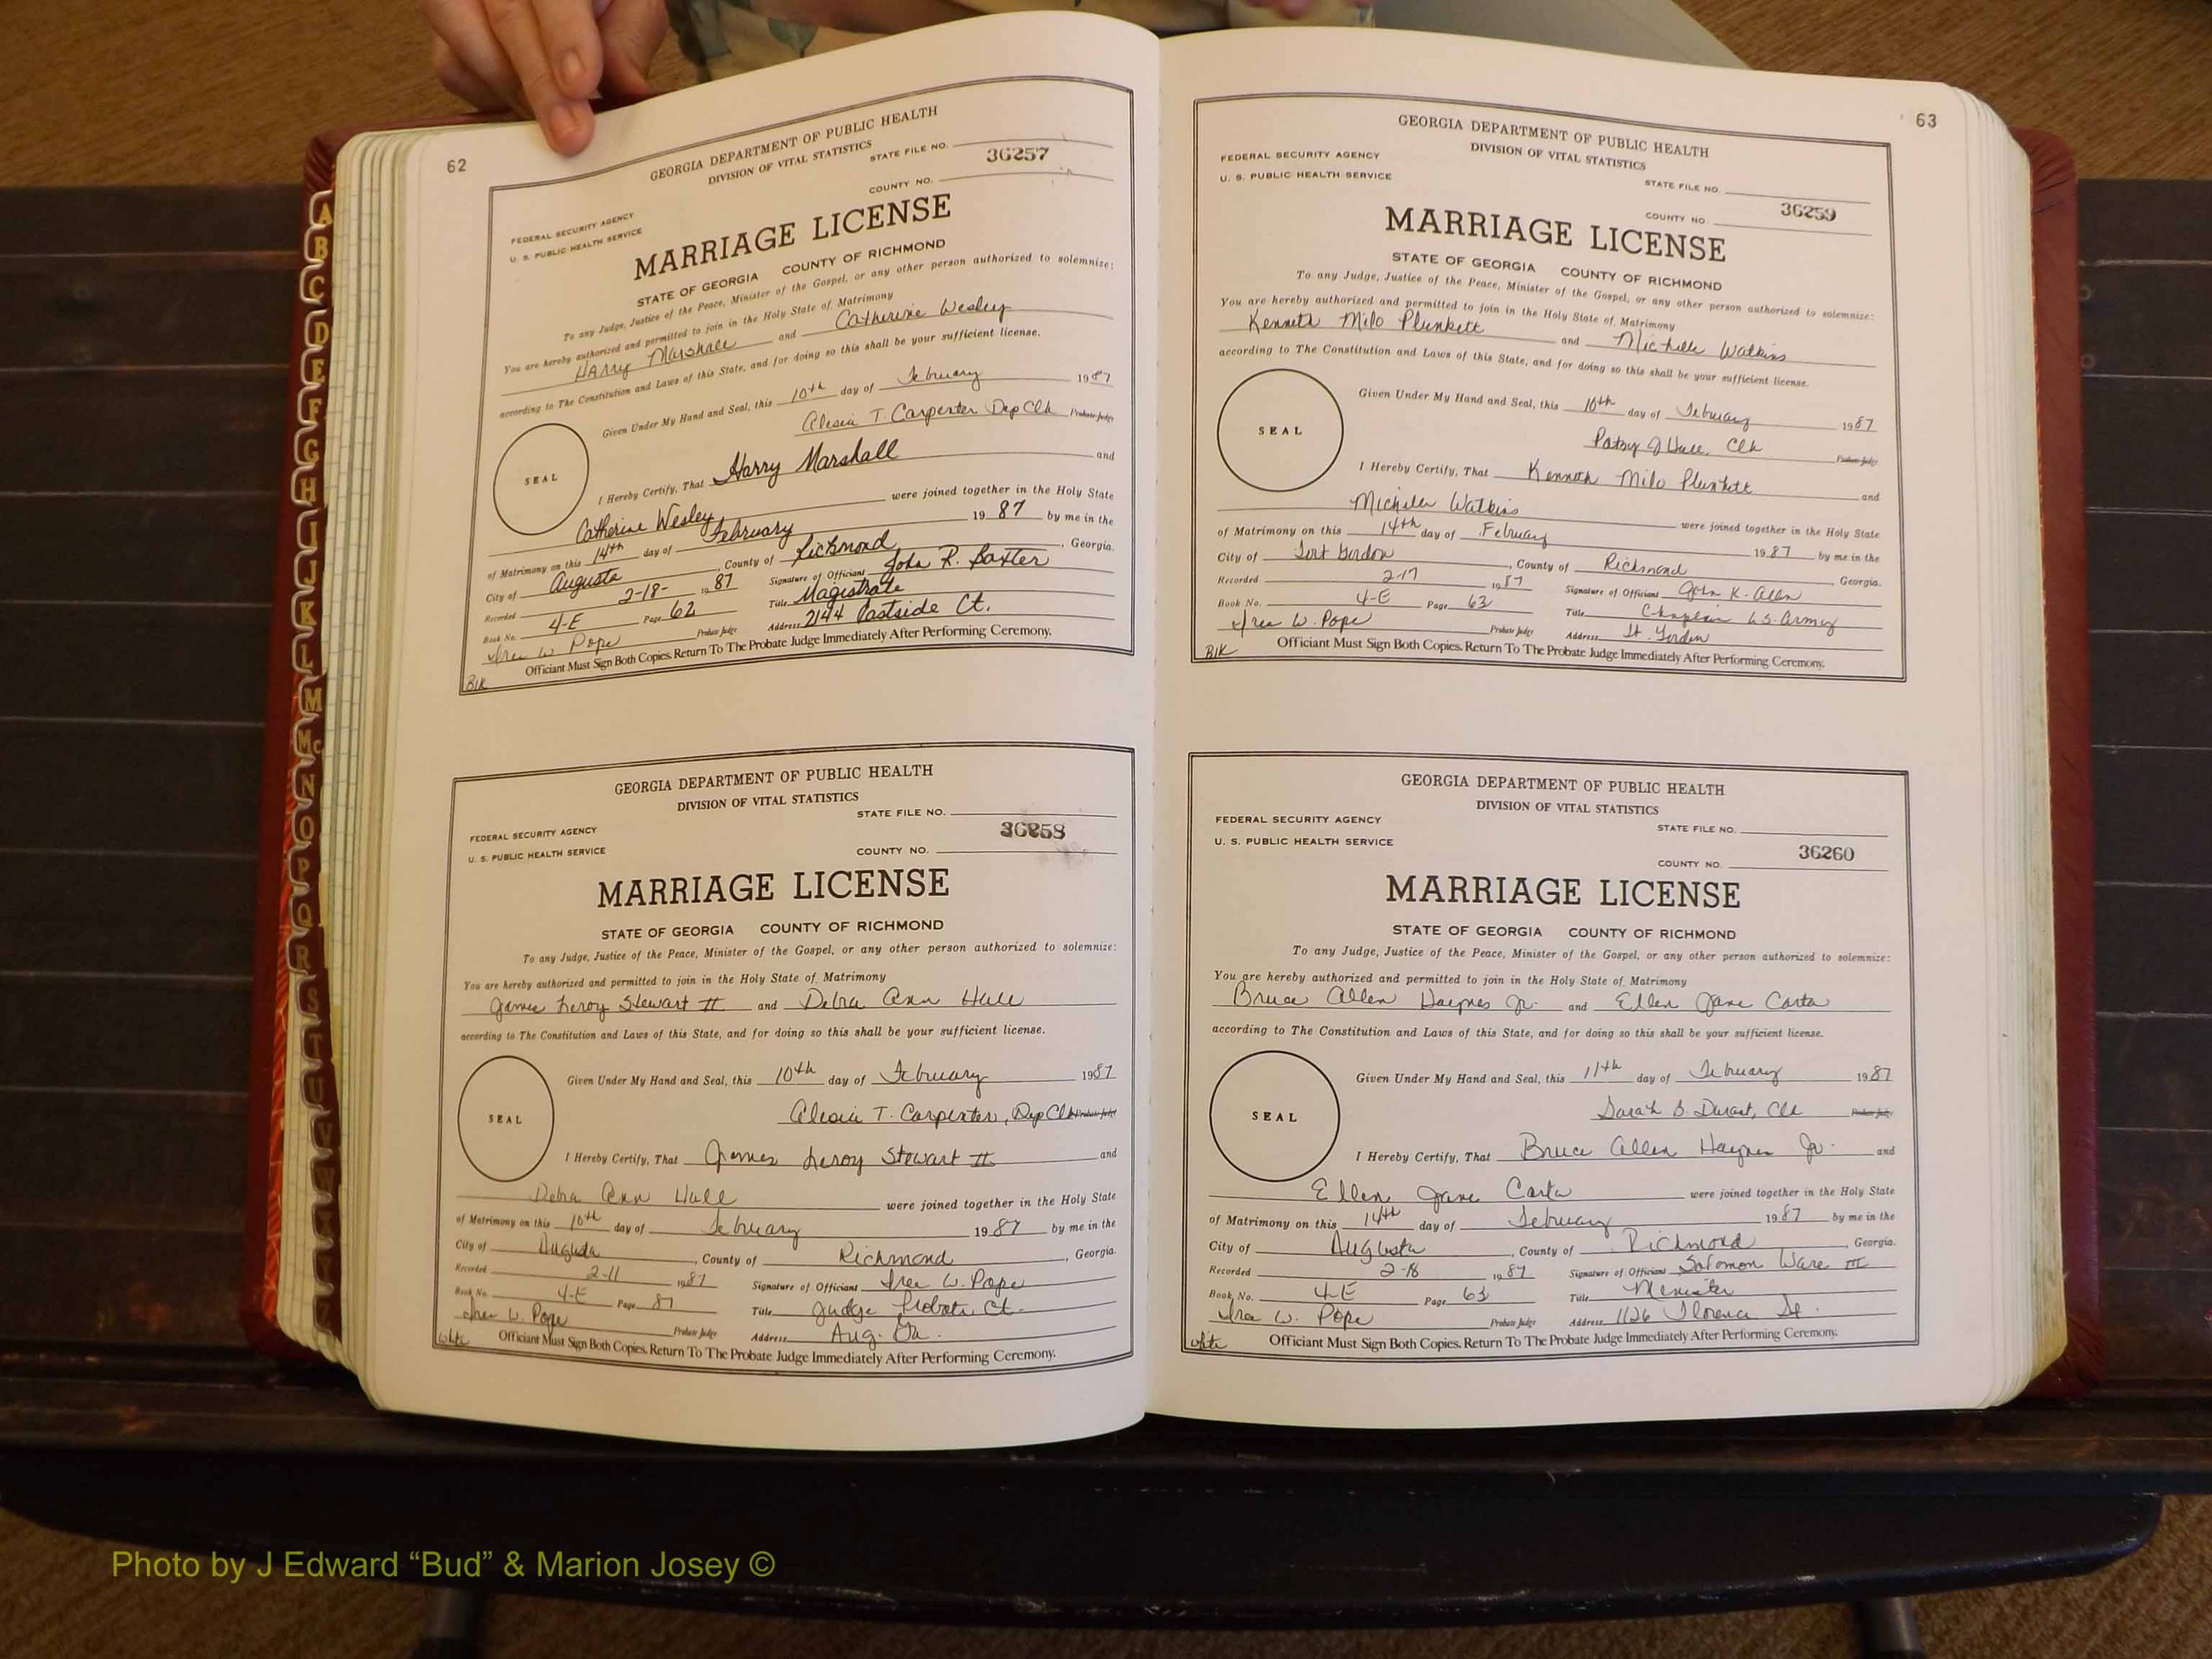 62
GEORGIA DEPARTMENT OF PUBLIC HEALTH
DIVISION OF VITAL STATISTICS
STATE FILE NO.
36257
COUNTY NO.
FEDERAL SECURITY AGENCY
U. S. PUBLIC HEALTH SERVICE
MARRIAGE LICENSE
STATE OF GEORGIA COUNTY OF RICHMOND
To any Judge, Justice of the Peace, Minister of the Gospel, or any other person authorized to solemnize:
You are hereby authorized and permitted to join in the Holy State of Matrimony
Harry Marshall and Catherine Wesley
according to The Constitution and Laws of this State, and for doing so this shall be your sufficient license.
Given Under My Hand and Seal, this 10th day of February 1987
Alesia T. Carpenter Dep Clk Probate Judge
SEAL
I Hereby Certify, That Harry Marshall and
Catherine Wesley were joined together in the Holy State
of Matrimony on this 14th day of February 19 87 by me in the
City of Augusta, County of Richmond, Georgia.
Recorded 2-18- 19 87 Signature of Officiant John R. Baxter
Book No. 4-E Page 62 Title Magistrate
W. Pope Probate Judge Address 2144 Eastside Ct.
Officiant Must Sign Both Copies. Return To The Probate Judge Immediately After Performing Ceremony.
Blk
GEORGIA DEPARTMENT OF PUBLIC HEALTH
DIVISION OF VITAL STATISTICS
STATE FILE NO.
36258
FEDERAL SECURITY AGENCY
U. S. PUBLIC HEALTH SERVICE
COUNTY NO.
MARRIAGE LICENSE
STATE OF GEORGIA COUNTY OF RICHMOND
To any Judge, Justice of the Peace, Minister of the Gospel, or any other person authorized to solemnize:
You are hereby authorized and permitted to join in the Holy State of Matrimony
James Leroy Stewart II and Debra Ann Hall
according to The Constitution and Laws of this State, and for doing so this shall be your sufficient license.
Given Under My Hand and Seal, this 10th day of February 1987
Alesia T. Carpenter, Dep Clk Probate Judge
SEAL
I Hereby Certify, That James Leroy Stewart II and
Debra Ann Hall were joined together in the Holy State
of Matrimony on this 10th day of February 19 87 by me in the
City of Augusta, County of Richmond, Georgia.
Recorded 2-11 1987 Signature of Officiant W. Pope
Book No. 4-E Page 87 Title Judge Probate Ct.
W. Pope Probate Judge Address Aug. Ga.
Officiant Must Sign Both Copies. Return To The Probate Judge Immediately After Performing Ceremony.
White
63
GEORGIA DEPARTMENT OF PUBLIC HEALTH
DIVISION OF VITAL STATISTICS
FEDERAL SECURITY AGENCY
U. S. PUBLIC HEALTH SERVICE
STATE FILE NO.
36259
COUNTY NO
MARRIAGE LICENSE
STATE OF GEORGIA COUNTY OF RICHMOND
To any Judge, Justice of the Peace, Minister of the Gospel, or any other person authorized to solemnize:
You are hereby authorized and permitted to join in the Holy State of Matrimony
Kenneth Milo Plunkett and Michelle Watkins
according to The Constitution and Laws of this State, and for doing so this shall be your sufficient license.
Given Under My Hand and Seal, this 10th day of February 1987
Patsy J Hall, Clk Probate Judge
SEAL
I Hereby Certify, That Kenneth Milo Plunkett and
Michelle Watkins were joined together in the Holy State
of Matrimony on this 14th day of February 1987 by me in the
City of Fort Gordon, County of Richmond, Georgia.
Recorded 2-17 1987 Signature of Officiant John K. Allen
Book No. 4-E Page 63 Title Chaplain U.S. Army
W. Pope Probate Judge Address Ft. Gordon
Officiant Must Sign Both Copies. Return To The Probate Judge Immediately After Performing Ceremony.
Blk
GEORGIA DEPARTMENT OF PUBLIC HEALTH
DIVISION OF VITAL STATISTICS
FEDERAL SECURITY AGENCY
U. S. PUBLIC HEALTH SERVICE
STATE FILE NO.
36260
COUNTY NO.
MARRIAGE LICENSE
STATE OF GEORGIA COUNTY OF RICHMOND
To any Judge, Justice of the Peace, Minister of the Gospel, or any other person authorized to solemnize:
You are hereby authorized and permitted to join in the Holy State of Matrimony
Bruce Allen Haynes Jr. and Ellen Jane Carta
according to The Constitution and Laws of this State, and for doing so this shall be your sufficient license.
Given Under My Hand and Seal, this 11th day of February 1987
Sarah B. Durant, Clk Probate Judge
SEAL
I Hereby Certify, That Bruce Allen Haynes Jr. and
Ellen Jane Carta were joined together in the Holy State
of Matrimony on this 14th day of February 1987 by me in the
City of Augusta, County of Richmond, Georgia.
Recorded 2-18 1987 Signature of Officiant Solomon Ware III
Book No. 4-E Page 63 Title Menister
W. Pope Probate Judge Address 1126 Florence St.
Officiant Must Sign Both Copies. Return To The Probate Judge Immediately After Performing Ceremony.
White
A
B
C
D
E
F
G
H
I
J
K
L
M
Mc
N
O
P
Q
R
S
T
U
V
W
Photo by J Edward “Bud” & Marion Josey ©